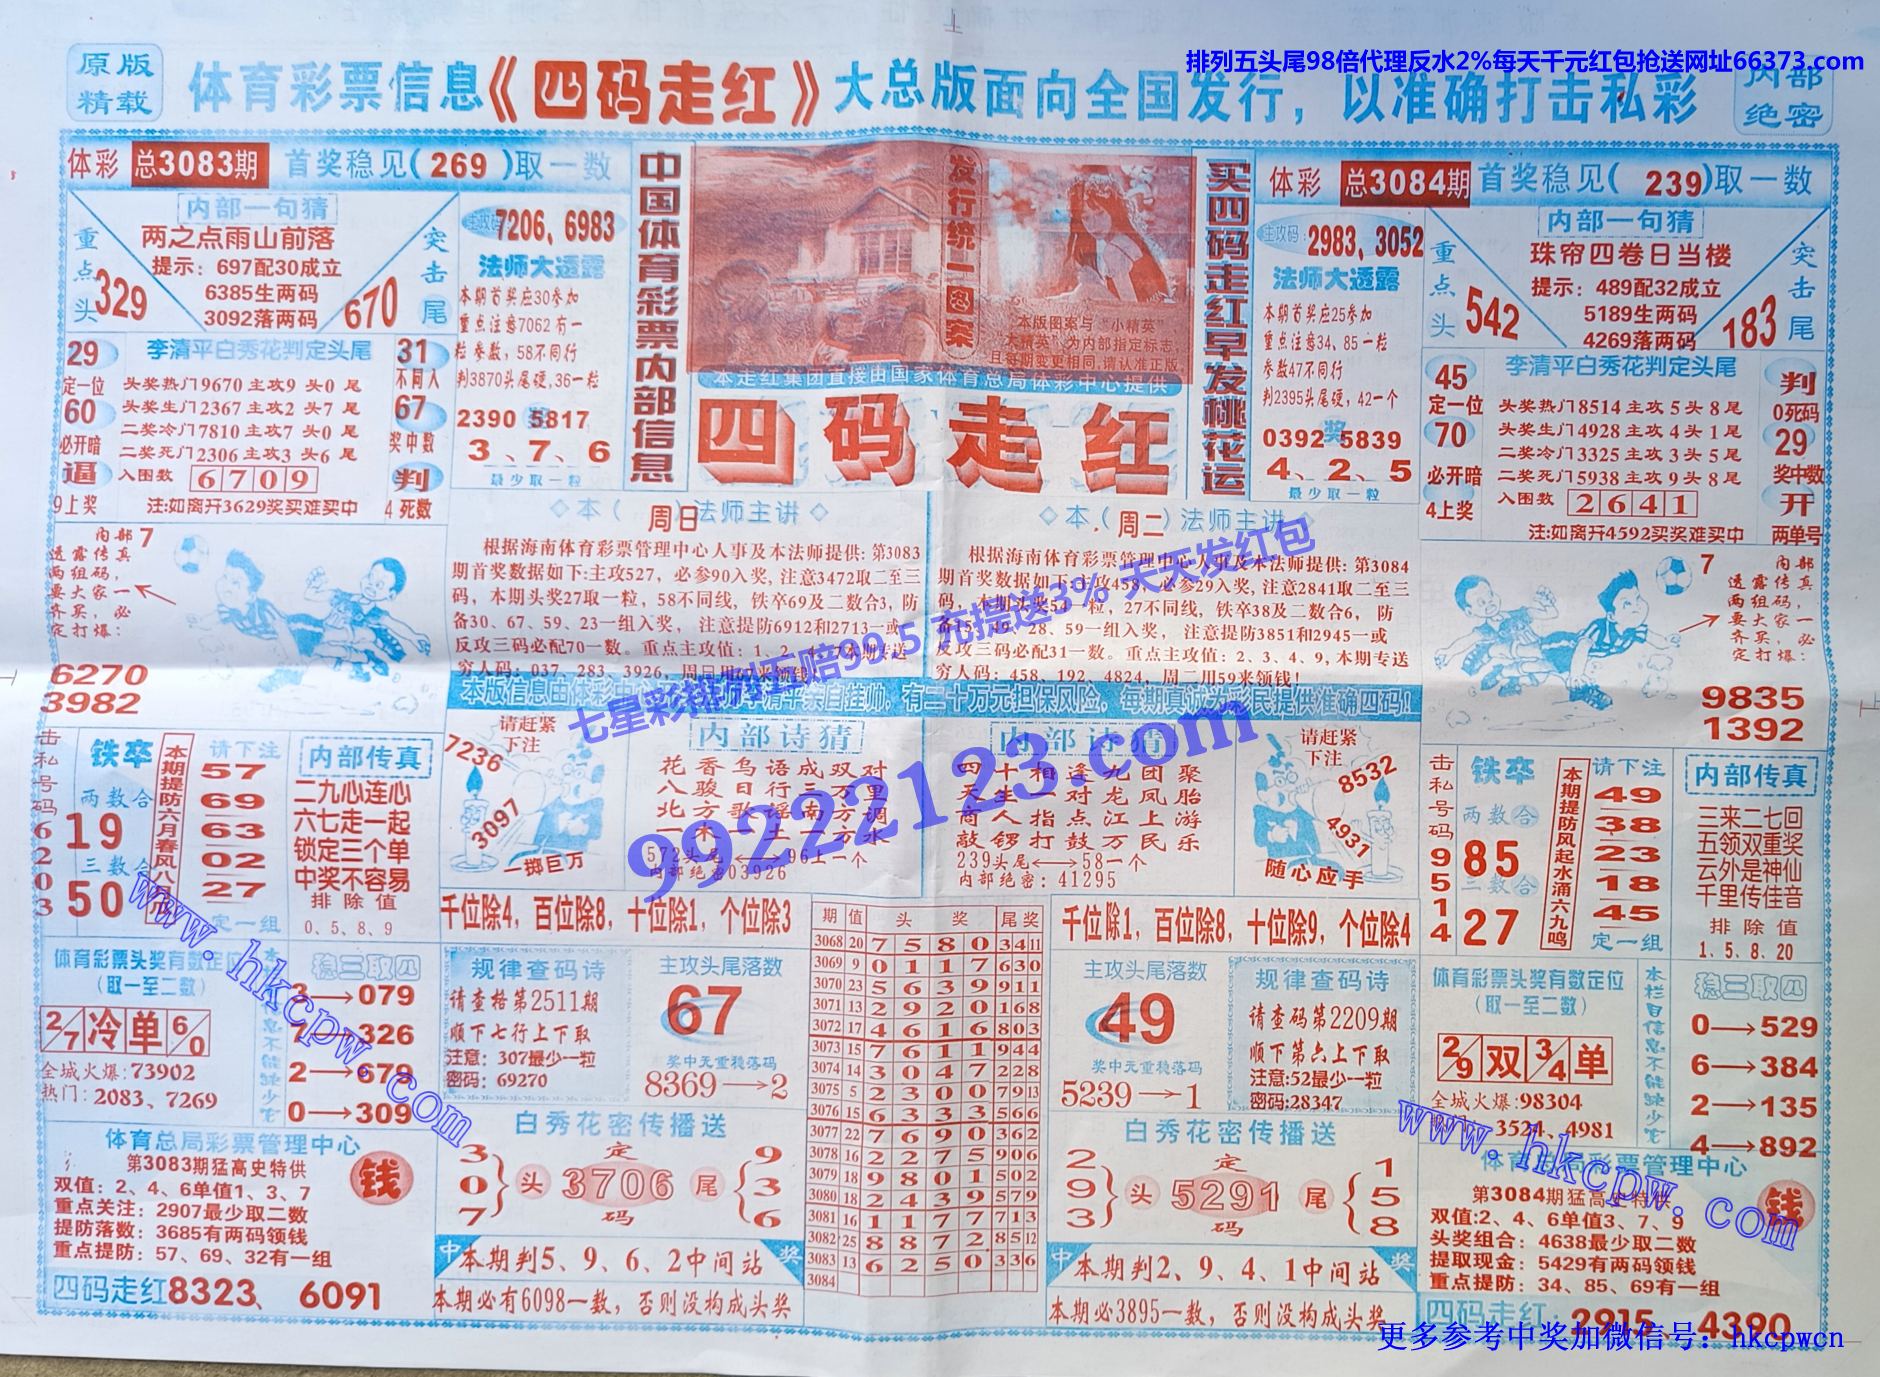 排列五头尾98倍代理反水2%每天千元红包抢送网址66373.com
原版
精载
体育彩票信息《四码走红》大总版面向全国发行，以准确打击私彩
内部
绝密
体彩 总3083期 首奖稳见(269)取一数
内部一句猜
两之点雨山前落
提示：697配30成立
6385生两码
3092落两码
重点头
329
突击尾
670
主攻码 7206、6983
法师大透露
本期首奖应30参加
重点注意7062有一
粒参数，58不同行
判3870头尾硬，36一粒
2390 5817
奖
3、7、6
最少取一粒
29
定一位
60
必开暗
逼
9上奖
李清平白秀花判定头尾
头奖热门9670主攻9 头0 尾
头奖生门2367主攻2 头7 尾
二奖冷门7810主攻7 头0 尾
二奖死门2306主攻3 头6 尾
入围数 6709
注:如离开3629奖买难买中
31
不同人
67
奖中数
判
4死数
中国体育彩票内部信息
发行统一图案
本版图案与“小精英”
“大精英”为内部指定标志，
且每期变更相同，请认准正版
本走红集团直接由国家体育总局体彩中心提供
四码走红
买四码走红早发桃花运
体彩 总3084期 首奖稳见(239)取一数
主攻码：2983、3052
法师大透露
本期首奖应25参加
重点注意34、85一粒
参数47不同行
判2395头尾硬，42一个
0392 5839
奖
4、2、5
最少取一粒
内部一句猜
珠帘四卷日当楼
提示：489配32成立
5189生两码
4269落两码
重点头
542
突击尾
183
45
定一位
70
必开暗
4上奖
李清平白秀花判定头尾
头奖热门8514主攻 5 头 8 尾
头奖生门4928主攻 4 头 1 尾
二奖冷门3325主攻 3 头 5 尾
二奖死门5938主攻 9 头 8 尾
入围数 2641
注:如离开4592买奖难买中
判
0死码
29
奖中数
开
两单号
内部
透露传真
两组码，
要大家一
齐买，必
定打爆：
7
6270
3982
◇本（周日）法师主讲◇
根据海南体育彩票管理中心人事及本法师提供：第3083
期首奖数据如下:主攻527，必参90入奖，注意3472取二至三
码，本期头奖27取一粒，58不同线，铁卒69及二数合3，防
备30、67、59、23一组入奖， 注意提防6912和2713一或
反攻三码必配70一数。重点主攻值：1、2、4、7本期专送
穷人码：037、283、3926，周日用67来领钱！
◇本（周二）法师主讲◇
根据海南体育彩票管理中心人事及本法师提供：第3084
期首奖数据如下:主攻458，必参29入奖，注意2841取二至三
码，本期头奖54一粒，27不同线，铁卒38及二数合6，防
备15、49、28、59一组入奖， 注意提防3851和2945一或
反攻三码必配31一数。重点主攻值：2、3、4、9，本期专送
穷人码：458、192、4824，周二用59来领钱！
7
内部
透露传真
两组码，
要大家一
齐买，必
定打爆：
9835
1392
七星彩排列五赔99.5 充提送3% 天天发红包
99222123.com
击私号码6203
铁卒
两数合
19
三数合
50
本期提防六月春风八月瓜
请下注
57
69
63
02
27
定一组
内部传真
二九心连心
六七走一起
锁定三个单
中奖不容易
排除值
0、5、8、9
请赶紧
下注
7236
3097
一掷巨万
内部诗猜
花香鸟语成双对
八骏日行三万里
北方歌谣南方调
一木一土一万水
内部绝密03926
内部诗猜
四十相逢九团聚
天生一对龙凤胎
商人指点江上游
敲锣打鼓万民乐
239头尾←→58一个
内部绝密：41295
请赶紧
下注
8532
4931
随心应手
击私号码9514
铁卒
两数合
85
三数合
27
本期提防风起水涌六九鸣
请下注
49
38
23
18
45
定一组
内部传真
三来二七回
五领双重奖
云外是神仙
千里传佳音
排除值
1、5、8、20
千位除4，百位除8，十位除1，个位除3
千位除1，百位除8，十位除9，个位除4
体育彩票头奖有数定位
(取一至二数)
2/7 冷 单 6/0
全城火爆:73902
热门：2083、7269
稳三取四
3→079
7→326
2→679
0→309
规律查码诗
请查格第2511期
顺下七行上下取
注意：307最少一粒
密码：69270
主攻头尾落数
67
奖中无重稳落码
8369→2
期 值 头奖 尾奖
3068 20 7580 3411
3069 9 0117 630
3070 23 5639 911
3071 13 2920 168
3072 17 4616 803
3073 15 7611 944
3074 14 3047 228
3075 5 2300 7913
3076 15 6333 566
3077 22 7690 362
3078 16 2275 906
3079 18 9801 502
3080 18 2439 579
3081 16 1177 713
3082 25 8872 8512
3083 13 6250 336
3084
主攻头尾落数
49
奖中无重稳落码
5239→1
规律查码诗
请查码第2209期
顺下第六上下取
注意:52最少一粒
密码:28347
体育彩票头奖有数定位
(取一至二数)
2/9 双 3/4 单
全城火爆:98304
3524、4981
本栏目信息不能缺少它
稳三取四
0→529
6→384
2→135
4→892
www.hkcpw.com
www.hkcpw.com
体育总局彩票管理中心
第3083期猛高史特供
双值：2、4、6单值1、3、7
重点关注：2907最少取二数
提防落数：3685有两码领钱
重点提防：57、69、32有一组
钱
四码走红8323、6091
白秀花密传播送
3
0
7
头
定
3706
码
尾
9
3
6
中 本期判5、9、6、2中间站 奖
本期必有6098一数，否则没构成头奖
白秀花密传播送
2
9
3
头
定
5291
码
尾
1
5
8
中 本期判2、9、4、1中间站 奖
本期必3895一数，否则没构成头奖
体育总局彩票管理中心
第3084期猛高史特供
双值:2、4、6单值3、7、9
头奖组合：4638最少取二数
提取现金：5429有两码领钱
重点提防：34、85、69有一组
钱
四码走红：2915、4390
更多参考中奖加微信号：hkcpwcn